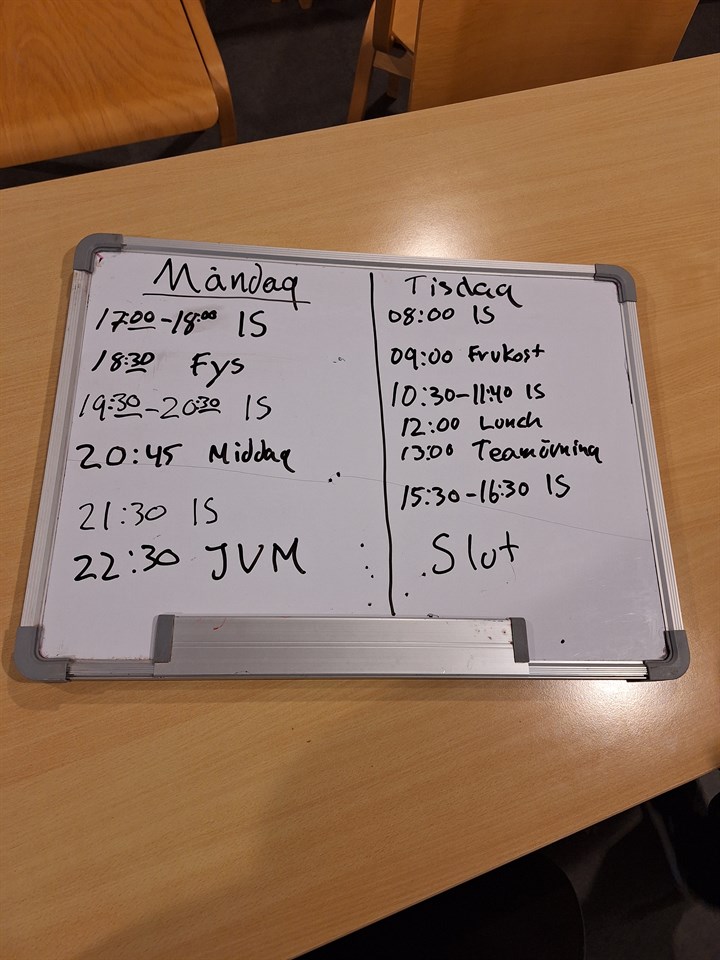 Måndag
17:00-18:00 IS
18:30 Fys
19:30-20:30 IS
20:45 Middag
21:30 IS
22:30 JVM
Tisdag
08:00 IS
09:00 Frukost
10:30-11:40 IS
12:00 Lunch
13:00 Teamövning
15:30-16:30 IS
Slut